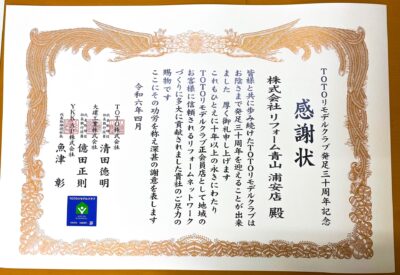 TOTOリモデルクラブ発足三十周年記念
感謝状
株式会社 リフォーム青山 浦安店 殿
皆様と共に歩み続けたTOTOリモデルクラブは
お陰さまで発足三十周年を迎えることが出来
ました 厚く御礼申し上げます
これもひとえに十年以上の永きにわたり
TOTOリモデルクラブ正会員店として地域の
お客様に信頼されるリフォームネットワーク
づくりに多大に貢献されました貴社のご尽力の
賜物です
ここにその功労を称え深甚の謝意を表します
令和六年四月
TOTO株式会社
清田 徳明
大建工業株式会社
億田 正則
YKK AP株式会社
魚津 彰